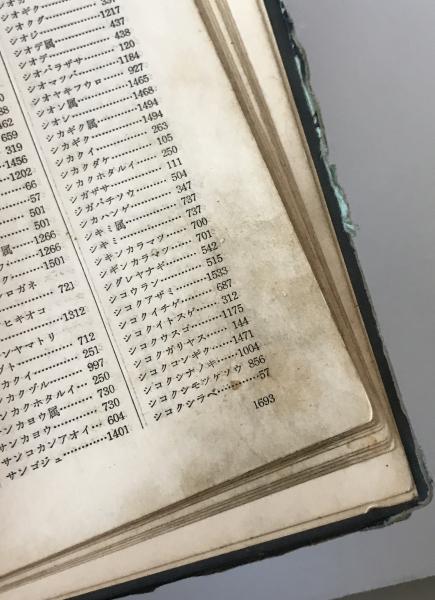 319
1456
1202
66
57
501
501
属……1266
……1266
……1501
シロガネ
721
ヒキオコ
1312
ンヤマトリ
712
……251
カクイ
カクヅル……997
ンカクホタルイ…250
サンカヨウ属……730
サンカヨウ……730
サンコカンアオイ…604
サンゴジュ……1401
シオギク……
シオクグ……1217
シオジ……437
シオデ属……438
シオデ……120
シオバラザサ……1184
シオマツバ……927
シオヤキフウロ……1465
シオン属……1468
シオン……1494
シカギク属……1494
シカギク……263
シカクイ……105
シカクダケ……250
シカクホタルイ……111
シガザサ……504
ジガバチソウ……347
シカハンゲ……737
シキミ属……737
シキミ……700
シキンカラマツ……701
シギンカラマツ……542
シグレヤナギ……515
シコウラン……1533
シコクアザミ……687
シコクイチゲ……312
シコクイトスゲ……1175
シコクウスゴ……144
シコクガリヤス……1471
シコクコンギク……1004
シコクシナノキ……856
シコクシモツケソウ
シコクシラベ……57
1693